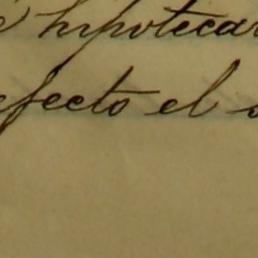 é hipotecar
efecto el s